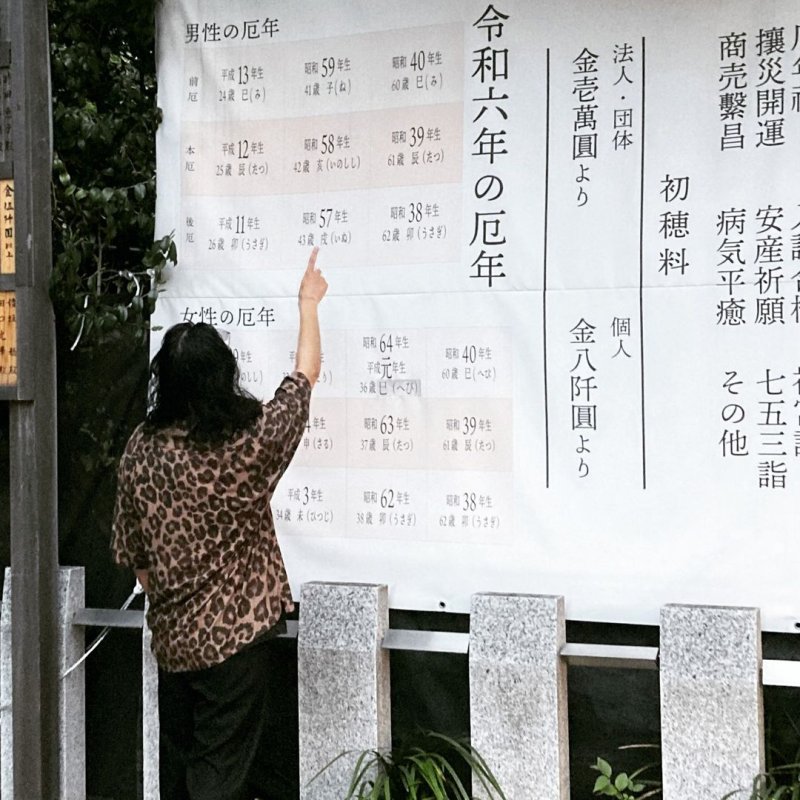 攘災開運
安産祈願
七五三詣
商売繫昌
病気平癒
その他
初穂料
法人・団体
金壱萬圓より
個人
金八阡圓より
令和六年の厄年
男性の厄年
前厄
平成13年生
24歳 巳(み)
昭和59年生
41歳 子(ね)
昭和40年生
60歳 巳(み)
本厄
平成12年生
25歳 辰(たつ)
昭和58年生
42歳 亥(いのしし)
昭和39年生
61歳 辰(たつ)
後厄
平成11年生
26歳 卯(うさぎ)
昭和57年生
43歳 戌(いぬ)
昭和38年生
62歳 卯(うさぎ)
女性の厄年
年生
のしし)
昭和64年生
平成元年生
36歳 巳(へび)
昭和40年生
60歳 巳(へび)
4年生
申(さる)
昭和63年生
37歳 辰(たつ)
昭和39年生
61歳 辰(たつ)
平成3年生
34歳 未(ひつじ)
昭和62年生
38歳 卯(うさぎ)
昭和38年生
62歳 卯(うさぎ)